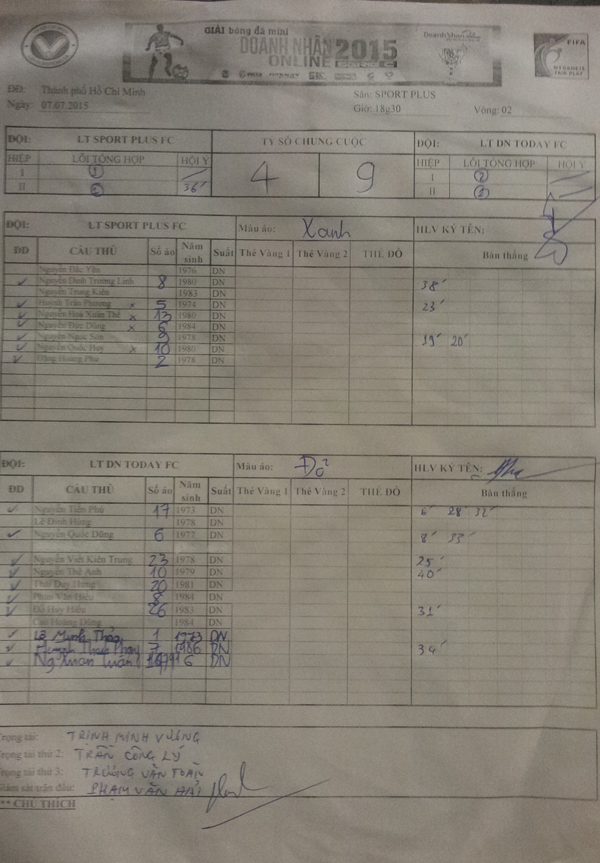 GIẢI bóng đá mini
DOANH NHÂN
ONLINE 2015
FIFA
ĐĐ: Thành phố Hồ Chí Minh
Sân: SPORT PLUS
Ngày: 07.07.2015
Giờ: 18g30
Vòng: 02
ĐỘI: LT SPORT PLUS FC
TỶ SỐ CHUNG CUỘC
ĐỘI: LT DN TODAY FC
HIỆP LỖI TỔNG HỢP HỘI Ý
4 9
HIỆP LỖI TỔNG HỢP HỘI Ý
I 1
I 2
II 2 36'
II 3
ĐỘI: LT SPORT PLUS FC Màu áo: Xanh HLV KÝ TÊN:
ĐD CẦU THỦ Số áo Năm sinh Suất Thẻ Vàng 1 Thẻ Vàng 2 THẺ ĐỎ Bàn thắng
Nguyễn Đắc Yên 1976 DN
✓ Nguyễn Đình Trường Linh 8 1980 DN 38'
Nguyễn Trung Kiên 1983 DN
✓ Huỳnh Trần Phương x 5 1974 DN 23'
✓ Nguyễn Hoà Xuân Thê x 13 1980 DN
✓ Nguyễn Đức Dũng x 6 1984 DN
✓ Nguyễn Ngọc Sơn 9 1978 DN 19' 20'
✓ Nguyễn Quốc Huy x 10 1980 DN
✓ Đặng Hoàng Phu 2 1978 DN
ĐỘI: LT DN TODAY FC Màu áo: Đỏ HLV KÝ TÊN:
ĐD CẦU THỦ Số áo Năm sinh Suất Thẻ Vàng 1 Thẻ Vàng 2 THẺ ĐỎ Bàn thắng
✓ Nguyễn Tiến Phú 17 1973 DN 6' 28' 32'
Lê Đình Hùng 1978 DN
✓ Nguyễn Quốc Dũng 6 1977 DN 8' 33'
✓ Nguyễn Viết Kiên Trung 23 1978 DN 25'
✓ Nguyễn Thế Anh 10 1979 DN 40'
✓ Thái Duy Hưng 20 1981 DN
✓ Phan Văn Hiếu 8 1984 DN
✓ Đỗ Huy Hiếu 26 1983 DN 31'
Cao Hoàng Dũng 1984 DN
✓ Lê Minh Thảo 1 1973 DN
✓ 7 1986 DN 34'
✓ Ng-Xuân Tuấn DN
Trọng tài: TRỊNH MINH VƯƠNG
Trọng tài thứ 2: TRẦN CÔNG LÝ
Trọng tài thứ 3: TRƯƠNG VĂN TOÀN
Giám sát trận đấu: PHẠM VĂN HẢI
** CHÚ THÍCH